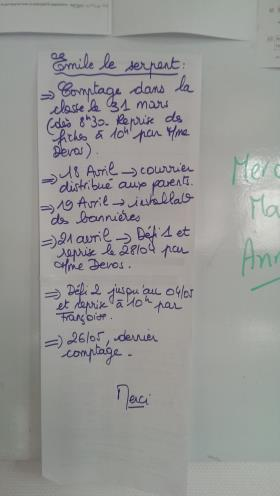 Emile le serpent:
=> Comptage dans la
classe le 31 mars
(dès 8h30 Reprise des
fiches à 10h par Mme
Devos).
=> 18 Avril -> courrier
distribué aux parents.
=> 19 Avril -> installat°
des bannières
=> 21 avril -> Défi 1 et
reprise le 28/04 par
Mme Devos.
=> Défi 2 jusqu'au 04/05
et reprise à 10h par
Françoise.
=> 26/05, dernier
comptage.
Merci
Merc
Ma
Ann